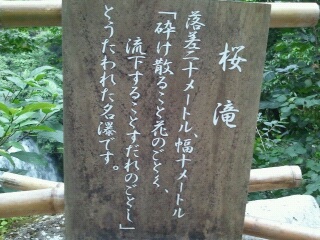 桜滝
落差二十メートル、幅十メートル
「砕け散ること花のごとく、
流下することすだれのごとし」
とうたわれた名瀑です。